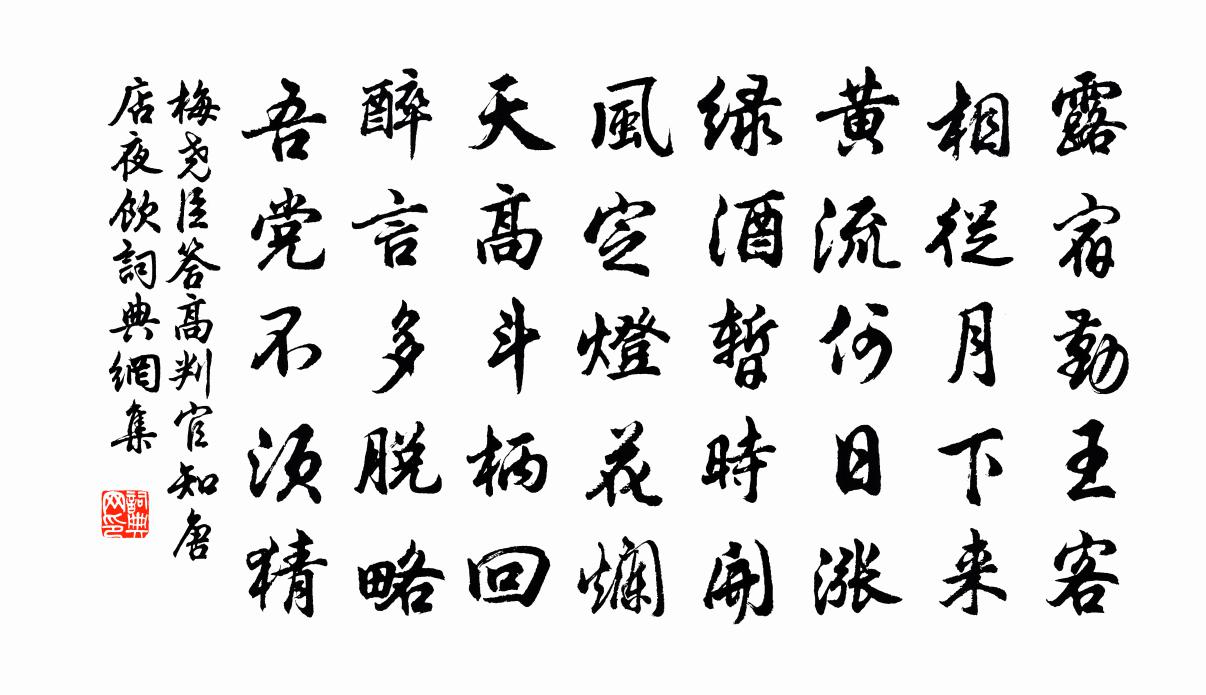 露宿勤王客
相從月下来
黄流何日漲
緑酒暫時開
風定燈花爛
天高斗柄回
醉言多脱略
吾党不須猜
梅堯臣答高判官知唐
店夜飲詞典網集
詞典网印